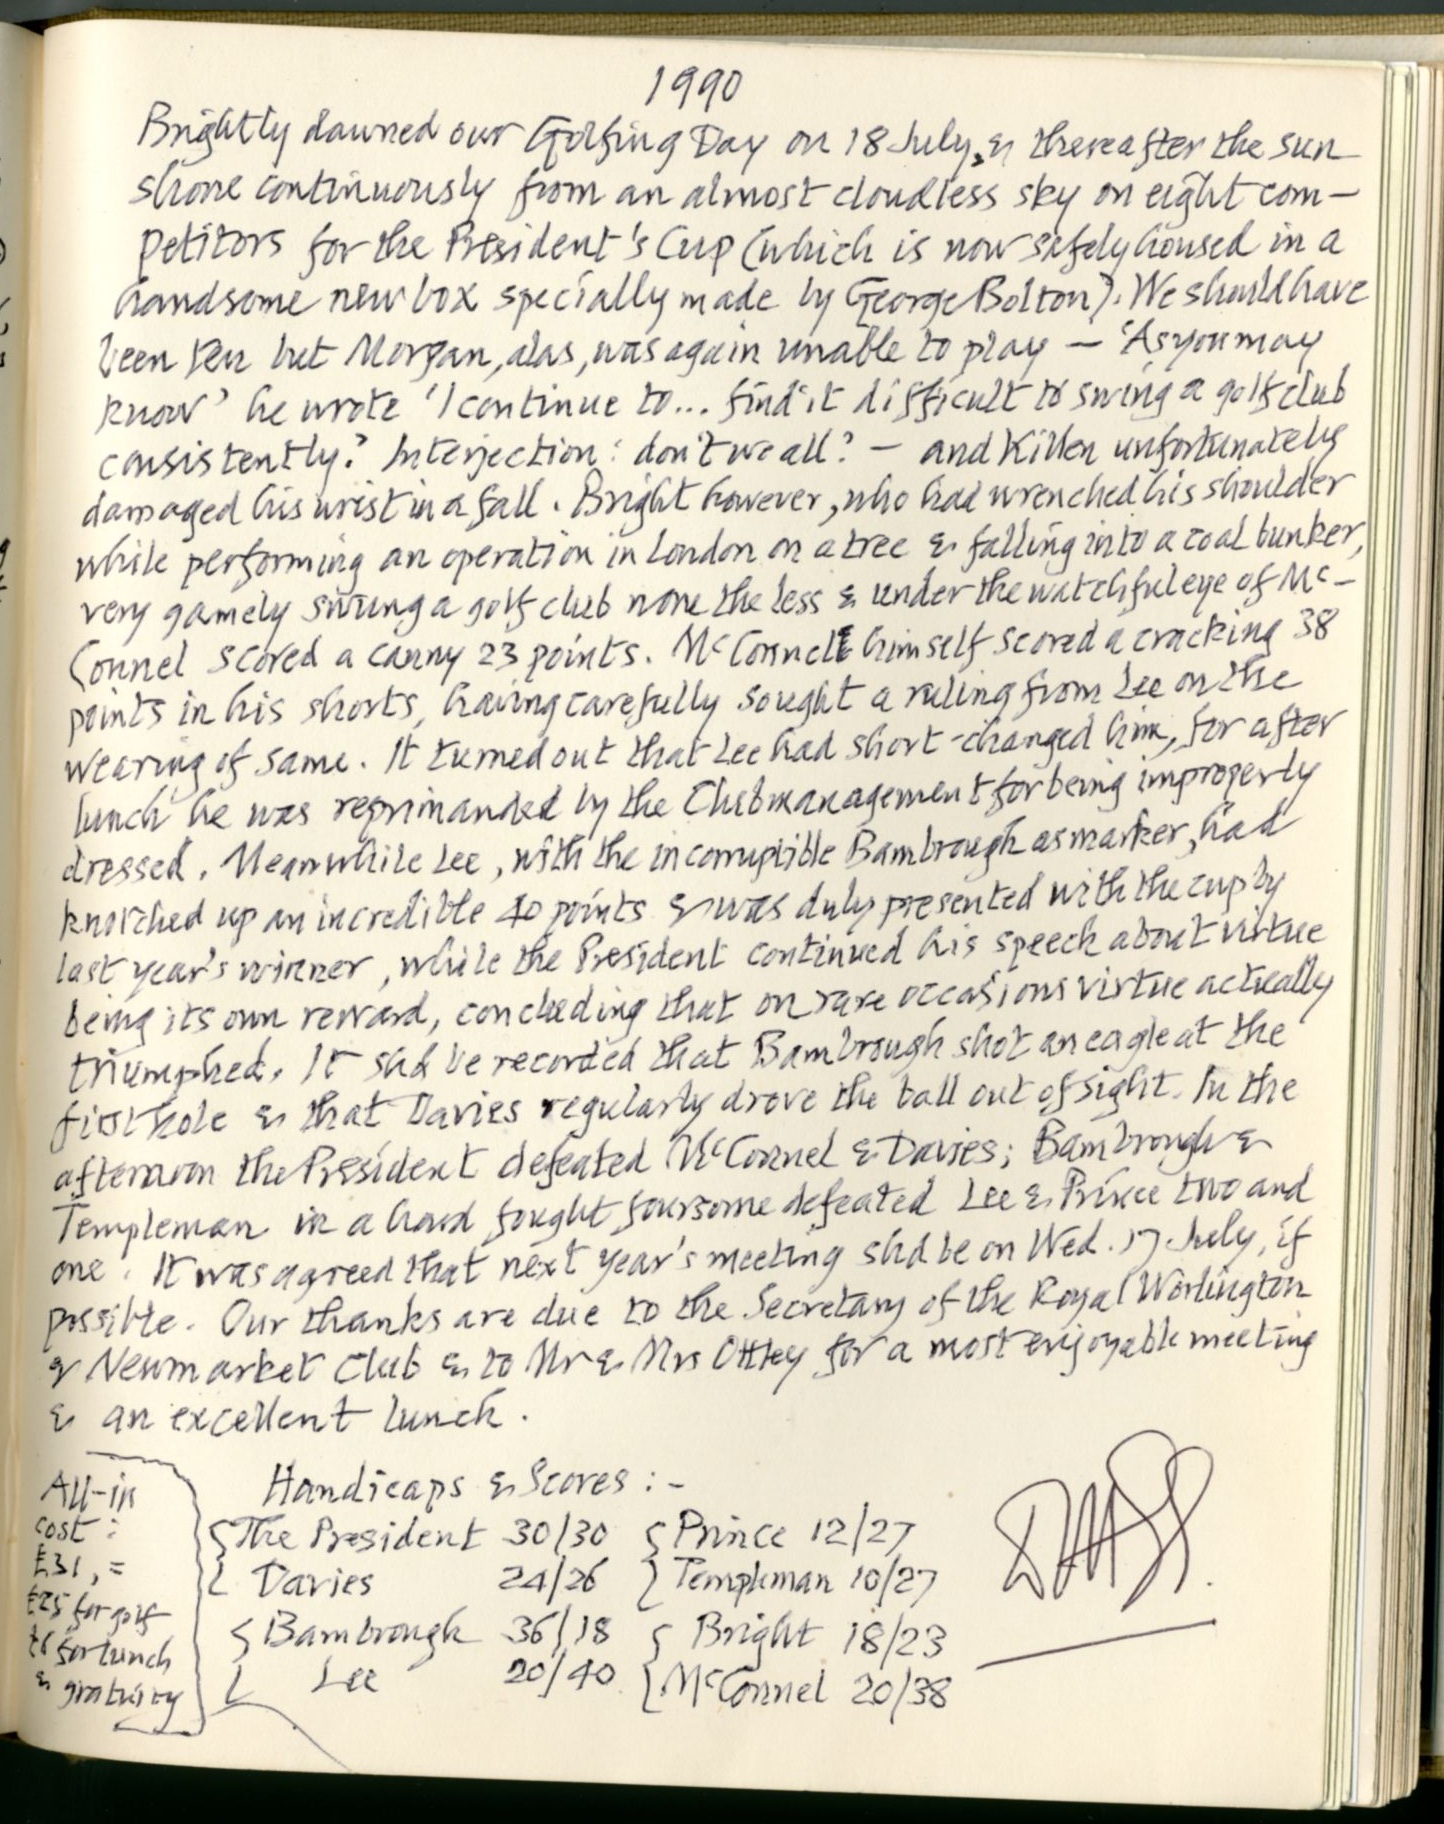 1990
Brightly dawned our Golfing Day on 18 July, & thereafter the sun
shone continuously from an almost cloudless sky on eight com-
petitors for the President's Cup (which is now safely housed in a
handsome new box specially made by George Bolton). We should have
been ten but Morgan, alas, was again unable to play — 'As you may
know' he wrote 'I continue to... find it difficult to swing a golf club
consistently.' Interjection: don't we all? — and Killen unfortunately
damaged his wrist in a fall. Bright however, who had wrenched his shoulder
while performing an operation in London on a tree & falling into a coal bunker,
very gamely swung a golf club none the less & under the watchful eye of Mc-
Connel scored a canny 23 points. McConnel himself scored a cracking 38
points in his shorts, having carefully sought a ruling from Lee on the
wearing of same. It turned out that Lee had short-changed him, for after
lunch he was reprimanded by the Club management for being improperly
dressed. Meanwhile Lee, with the incorruptible Bambrough as marker, had
knotched up an incredible 40 points & was duly presented with the cup by
last year's winner, while the President continued his speech about virtue
being its own reward, concluding that on rare occasions virtue actually
triumphed. It shd be recorded that Bambrough shot an eagle at the
first hole & that Davies regularly drove the ball out of sight. In the
afternoon the President defeated McConnel & Davies; Bambrough &
Templeman in a hard fought foursome defeated Lee & Prince two and
one. It was agreed that next year's meeting shd be on Wed. 17 July, if
possible. Our thanks are due to the Secretary of the Royal Worlington
& Newmarket Club & to Mr & Mrs Ottley for a most enjoyable meeting
& an excellent lunch.
Handicaps & Scores :-
The President 30/30 Prince 12/27
Davies 24/26 Templeman 10/27
Bambrough 36/18 Bright 18/23
Lee 20/40 McConnel 20/38
All-in
cost:
£31, =
£25 for golf
£6 for lunch
& gratuity